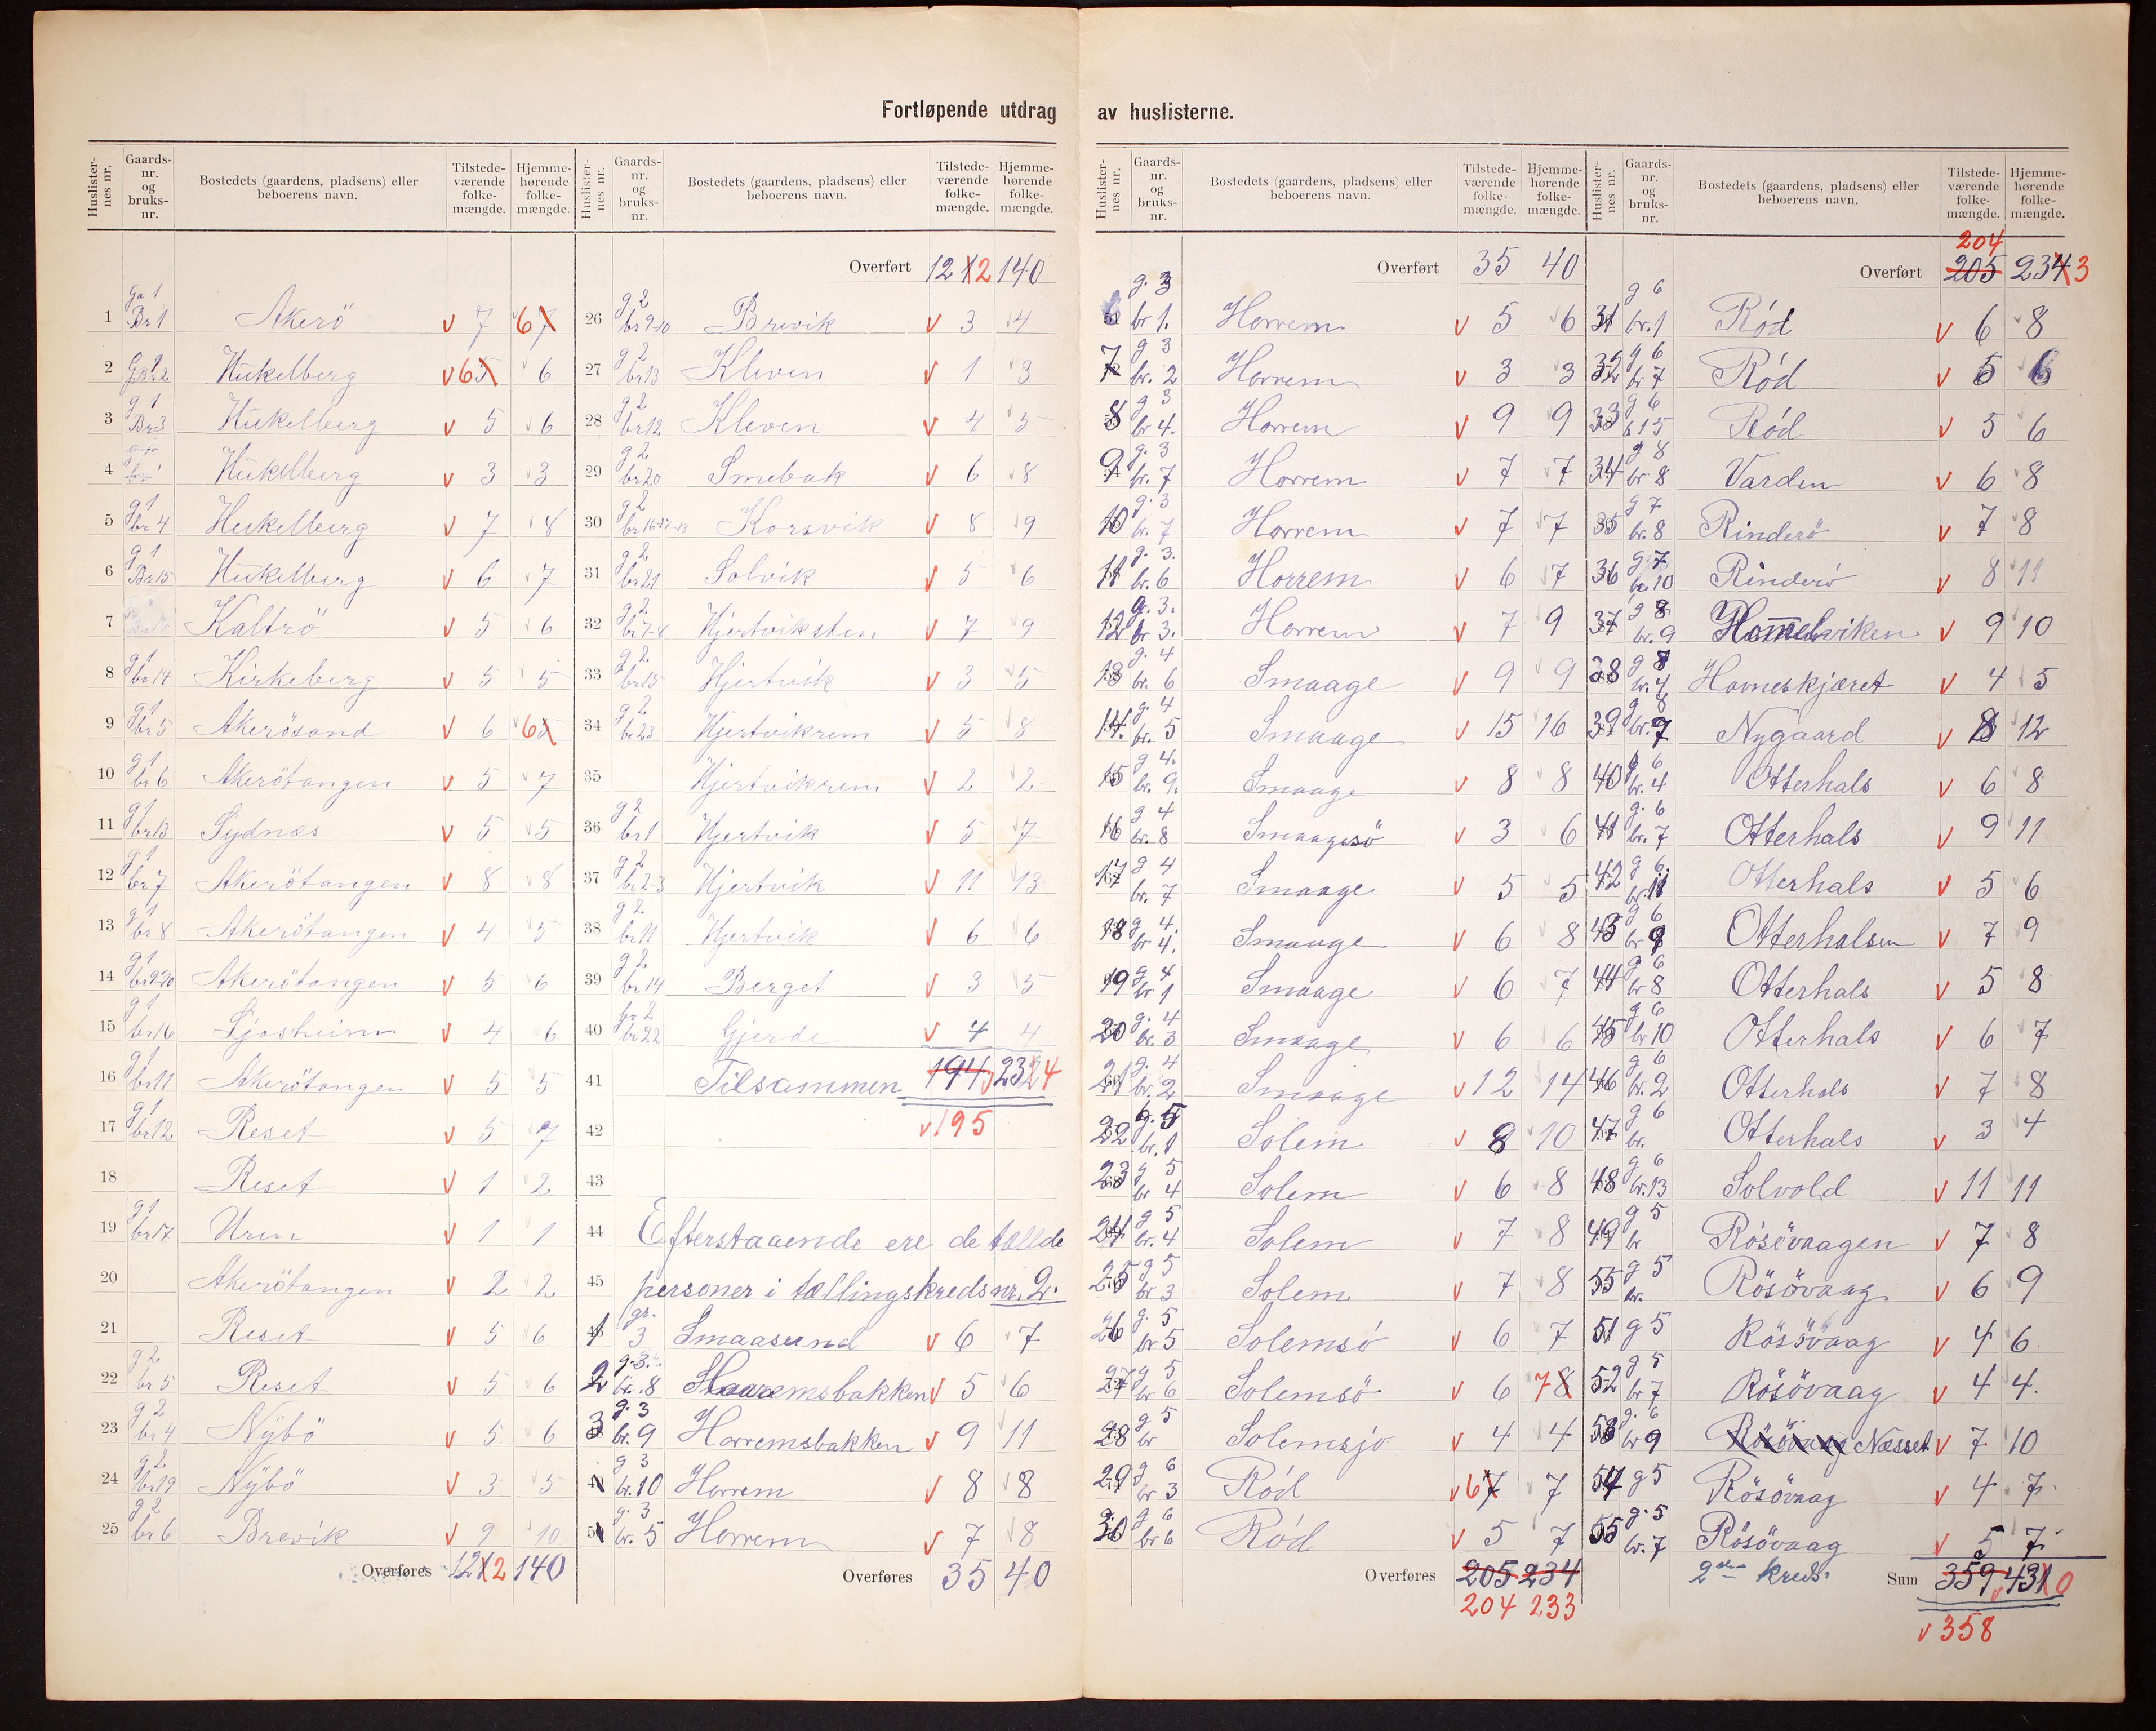 Fortløpende utdrag av huslisterne.
Huslister-nes nr. Gaards-nr. og bruks-nr. Bostedets (gaardens, pladsens) eller beboerens navn. Tilstede-værende folke-mængde. Hjemme-hørende folke-mængde.
1 Ga 1 Br 1 Akerö 7 6
2 Hukelberg 6 6
3 g 1 Br 3 Hukelberg 5 6
4 Hukelberg 3 3
5 g 1 br 4 Hukelberg 7 8
6 g 1 Br 15 Hukelberg 6 7
7 Kaltrö 5 6
8 g 1 br 14 Kirkeberg 5 5
9 g 1 br 5 Akerösand 6 6
10 g 1 br 6 Akerötangen 5 7
11 g 1 br 13 Sydnæs 5 5
12 g 1 br 7 Akerötangen 8 8
13 g 1 br 8 Akerötangen 4 5
14 g 1 br 9-20 Akerötangen 5 6
15 g 1 br 16 Ljosheim 4 6
16 g 1 br 11 Akerötangen 5 5
17 g 1 br 12 Reset 5 7
18 Reset 1 2
19 g 1 br 17 Uren 1 1
20 Akerötangen 2 2
21 Reset 5 6
22 g 2 br 5 Reset 5 6
23 g 2 br 4 Nybö 5 6
24 g 2 br 19 Nybö 3 5
25 g 2 br 6 Brevik 9 10
Overføres 122 140
Huslister-nes nr. Gaards-nr. og bruks-nr. Bostedets (gaardens, pladsens) eller beboerens navn. Tilstede-værende folke-mængde. Hjemme-hørende folke-mængde.
Overført 122 140
26 g 2 br 9-10 Brevik 3 4
27 g 2 br 13 Kleven 1 3
28 g 2 br 12 Kleven 4 5
29 g 2 br 20 Smebak 6 8
30 g 2 br 16-17-18 Korsvik 8 9
31 g 2 br 21 Solvik 5 6
32 g 2 br 7-8 Hjertviksten 7 9
33 g 2 br 15 Hjertvik 3 5
34 g 2 br 23 Hjertvikrem 5 8
35 Hjertvikrem 2 2
36 g 2 br 1 Hjertvik 5 7
37 g 2 br 2-3 Hjertvik 11 13
38 g 2 br 11 Hjertvik 6 6
39 g 2 br 14 Berget 3 5
40 br 2 br 22 Gjerde 4 4
41 Tilsammen 194 234
42 195
43
44 Efterstaaende ere de tællde
45 personer i tællingskreds nr. 2.
1 gr. 3 Smaasund 6 7
2 g. 3. br. 8 Haaremsbakken 5 6
3 g. 3 br. 9 Harremsbakken 9 11
4 g 3 br. 10 Harrem 8 8
5 g. 3 br. 5 Harrem 7 8
Overføres 35 40
Huslister-nes nr. Gaards-nr. og bruks-nr. Bostedets (gaardens, pladsens) eller beboerens navn. Tilstede-værende folke-mængde. Hjemme-hørende folke-mængde.
Overført 35 40
6 g. 3 br 1. Horrem 5 6
7 g 3 br. 2 Horrem 3 3
8 g 3 br 4. Horrem 9 9
9 g. 3 br. 7 Horrem 7 7
10 g. 3 br. 7 Horrem 7 7
11 g. 3. br. 6 Horrem 6 7
12 g. 3. br 3. Horrem 7 9
13 g. 4 br. 6 Smaage 9 9
14. g. 4 br. 5 Smaage 15 16
15 g 4. br. 9. Smaage 8 8
16 g 4 br. 8 Smaagesö 3 6
17 g 4 br. 7 Smaage 5 5
18 g. 4. br 4. Smaage 6 8
19 g. 4 br 1 Smaage 6 7
20 g. 4 br. 3 Smaage 6 6
21 g. 4 br. 2 Smaage 12 14
22 g. 5 br. 1 Solem 8 10
23 g 5 br 4 Solem 6 8
24 g 5 br. 4 Solem 7 8
25 g 5 br 3 Solem 7 8
26 g. 5 br 5 Solemsö 6 7
27 g 5 br 6 Solemsö 6 7
28 g 5 br Solemsjo 4 4
29 g 6 br 3 Ród 6 7
30 g 6 br 6 Ród 5 7
Overføres 205 234
204 233
Huslister-nes nr. Gaards-nr. og bruks-nr. Bostedets (gaardens, pladsens) eller beboerens navn. Tilstede-værende folke-mængde. Hjemme-hørende folke-mængde.
204
Overført 205 234 3
31 g 6 br. 1 Ród 6 8
32 g 6 br 7 Ród 5 6
33 g 6 b 15 Ród 5 6
34 g 8 br 8 Varden 6 8
35 g 7 br. 8 Rinderö 7 8
36 g 7 br. 10 Rinderö 8 11
37 g 8 br. 9 Homelviken 9 10
38 g 8 br. 4 Havneskjæret 4 5
39 g 8 br. 9 Nygaard 8 12
40 g 6 br. 4 Otterhals 6 8
41 g. 6 br. 7 Otterhals 9 11
42 g 6. br. 11 Otterhals 5 6
43 g 6 br 9 Otterhalsen 7 9
44 g 6 br 8 Otterhals 5 8
45 g 6 br 10 Otterhals 6 7
46 g 6 br. 2 Otterhals 7 8
47 g 6 br. Otterhals 3 4
48 g 6 br. 13 Solvold 11 11
49 g 5 br Rösövaagen 7 8
55 g 5 br. Rösövaag 6 9
51 g 5 Rösövaag 4 6
52 g 5 br 7 Rösövaag 4 4.
53 g. 6 br 9 Rösövaag Næsset 7 10
54 g 5 Rösövaag 4 7.
55 g. 5 br. 7 Rösövaag 5 7
2den kreds. Sum 359 431 0
358